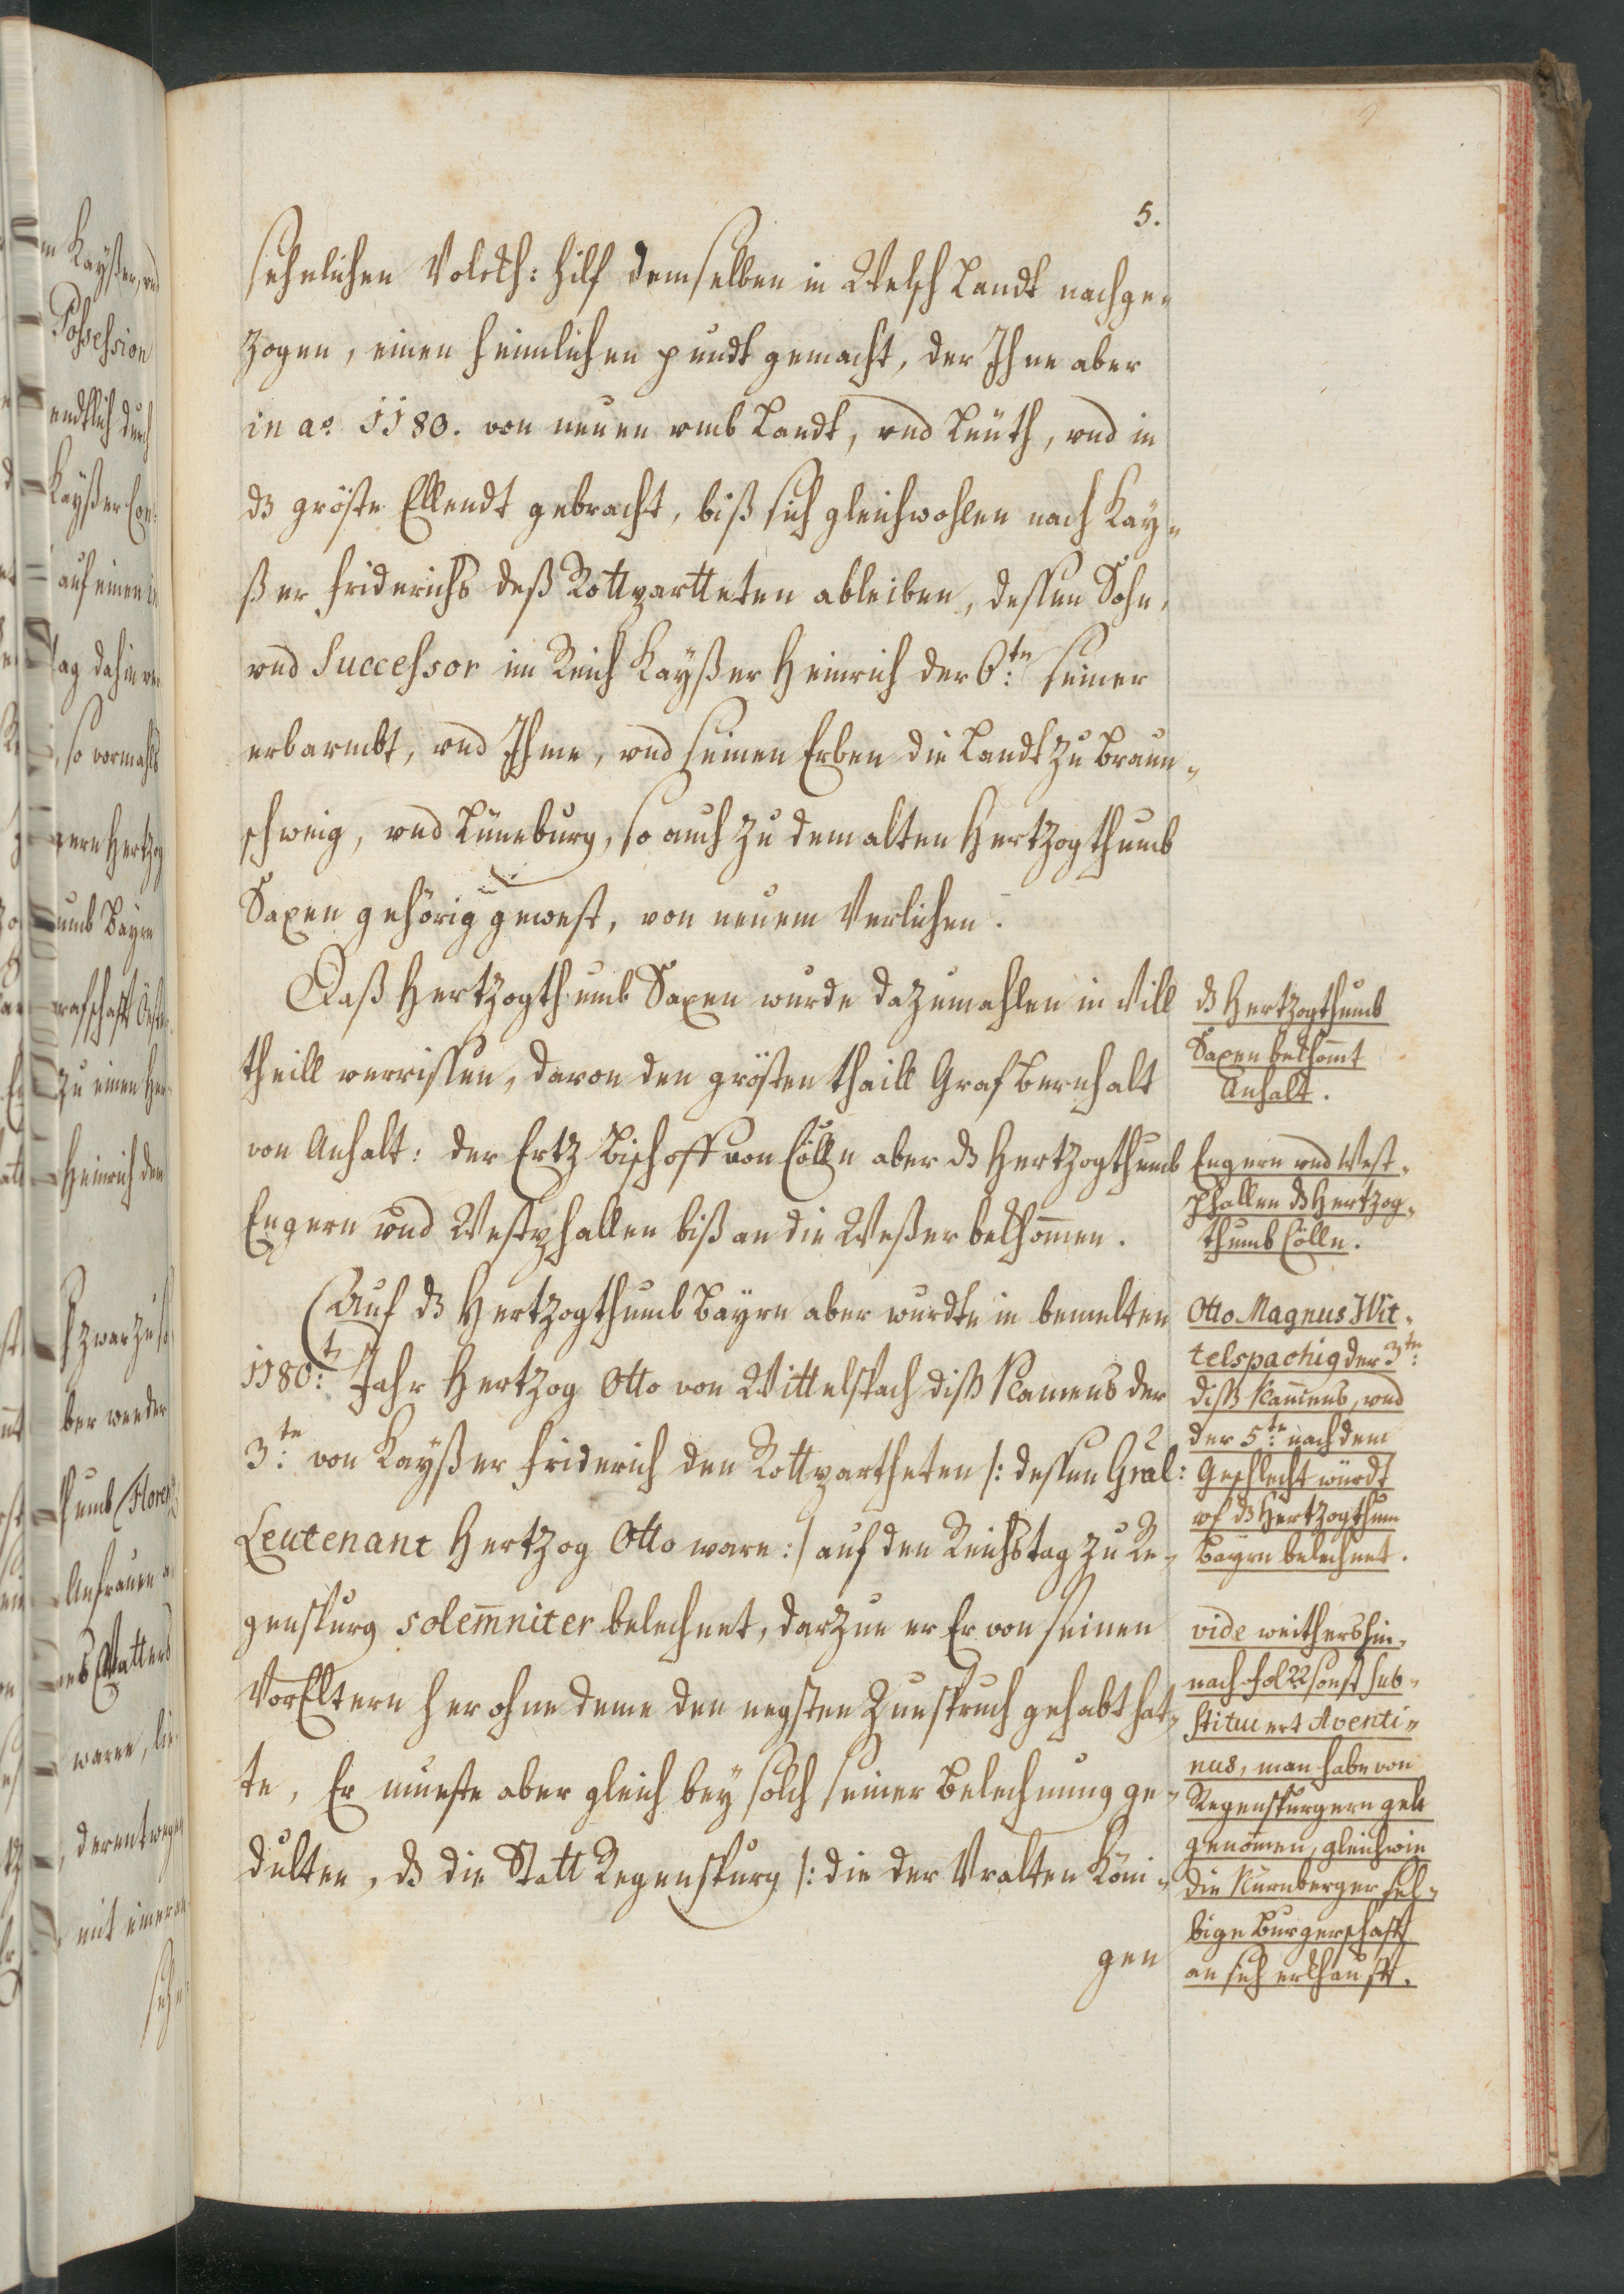 5.
sehnlichen Volckh: hilf demselben in Welsch Landt nachge¬
zogen, einen heimlichen pundt gemacht, der Ihne aber
in ao. 1180. von neuen vmb Landt, vnd Leuth, vnd in
dz gröste Ellendt gebracht, biß sich gleichwohlen nach Kay¬
ßer Friderichs deß Rottpartteten ableiben, dessen Sohn,
vnd Successor im Reich Kayßer Heinrich der 6.tn: seiner
erbarmbt, vnd Ihme, vnd seinen Erben die Landt zu Braun¬
schweig, vnd Lüneburg, so auch zu dem alten Hertzogthumb
Saxen gehörig gewest, von neuem Verlichen.
Daß Hertzogthumb Saxen wurde dazumahlen in Vill
theill verrissen, davon den grösten thaill Graf Bernhalt
von Anhalt: der Ertz Bischoff von Cölln aber dz Hertzogthumb
Engern vnd Westphallen biß an die Weßer bekhommen.
Auf dz Hertzogthumb Bayrn aber wurdte in bemelten
1180:t Jahr Hertzog Otto von Wittelspach diß Namens der
3:te von Kayßer Friderich den Rottpartheten /: dessen Gräl:
Leutenant Hertzog Otto ware :/ auf den Reichstag zu Re¬
genspurg solemniter belechnet, darzue er Er von seinen
VorEltern her ohne deme den negsten Zuespruch gehabt hat¬
te, Er mueste aber gleich bey solch seiner Belechnung ge¬
dulten, dz die Statt Regenspurg /: die der Vralten Köni¬
gen
dz Hertzogthumb
Saxen bekhomt
Anhalt.
Engern vnd West¬
phallen dz Hertzog¬
thumb Cölln.
Otto Magnus Wit¬
telspachig der 3te:
diß Namens, vnd
der 5:te nach dem
Geschlecht würdt
vf dz Hertzogthum
Bayrn belechnet.
vide weithers hin¬
nach fol 22 sonst sub¬
stituert Aventi¬
nus, man habe von
Regenspurgern gelt
genommen, gleich wie
die Nürnberger sel¬
bige Burgerschafft
an sich erkhaufft.